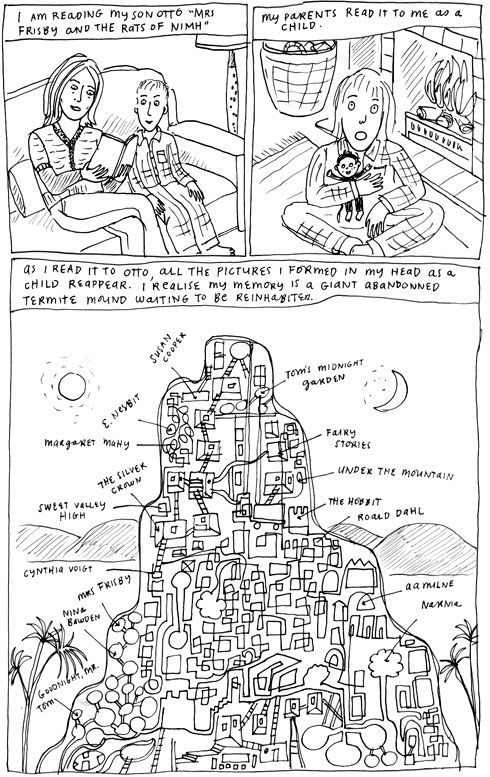 I AM READING MY SON OTTO "MRS
FRISBY AND THE RATS OF NIMH"
MY PARENTS READ IT TO ME AS A
CHILD.
AS I READ IT TO OTTO, ALL THE PICTURES I FORMED IN MY HEAD AS A
CHILD REAPPEAR. I REALISE MY MEMORY IS A GIANT ABANDONNED
TERMITE MOUND WAITING TO BE REINHABITED.
SUSAN
COOPER
TOM'S MIDNIGHT
GARDEN
E. NESBIT
MARGARET MAHY
FAIRY
STORIES
THE SILVER
CROWN
UNDER THE MOUNTAIN
SWEET VALLEY
HIGH
THE HOBBIT
ROALD DAHL
CYNTHIA VOIGT
MRS FRISBY
AA MILNE
NINA
BAWDEN
NARNIA
GOODNIGHT, MR.
TOM